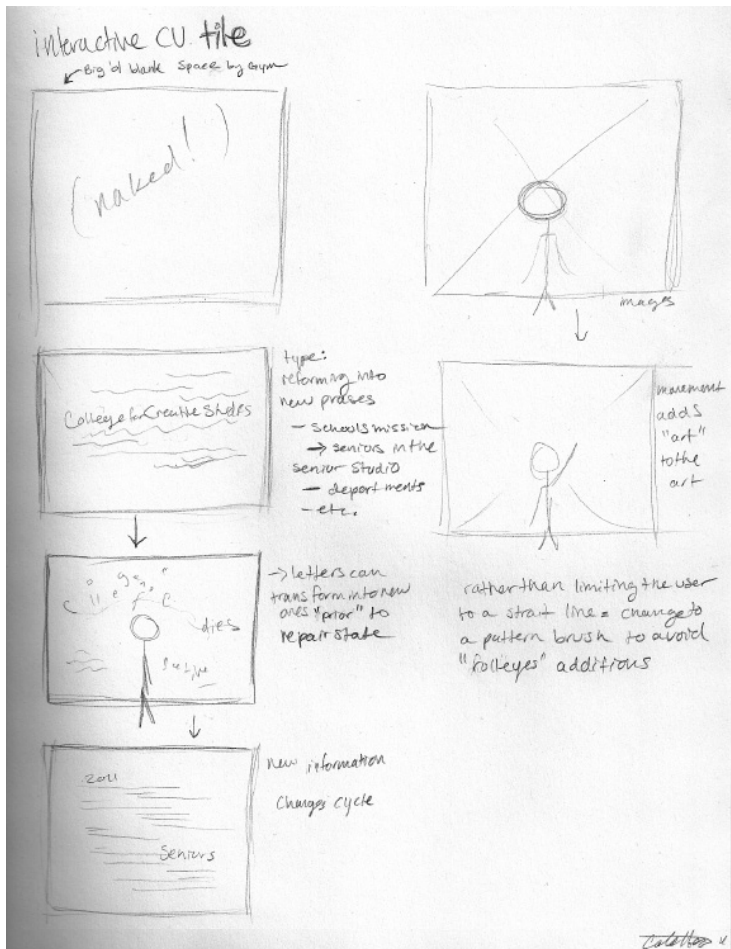 interactive CU tile
Big 'ol blank space by Gym
(naked!)
College for Creative Studies
type:
reforming into
new prases
- Schools mission
→ seniors in the
senior studio
- departments
- etc.
→ letters can
transform into new
ones "prior" to
repair state
dies
new information
Changes cycle
2011
Seniors
images
movement
adds
"art"
to the
art
rather than limiting the user
to a strait line = change to
a pattern brush to avoid
additions